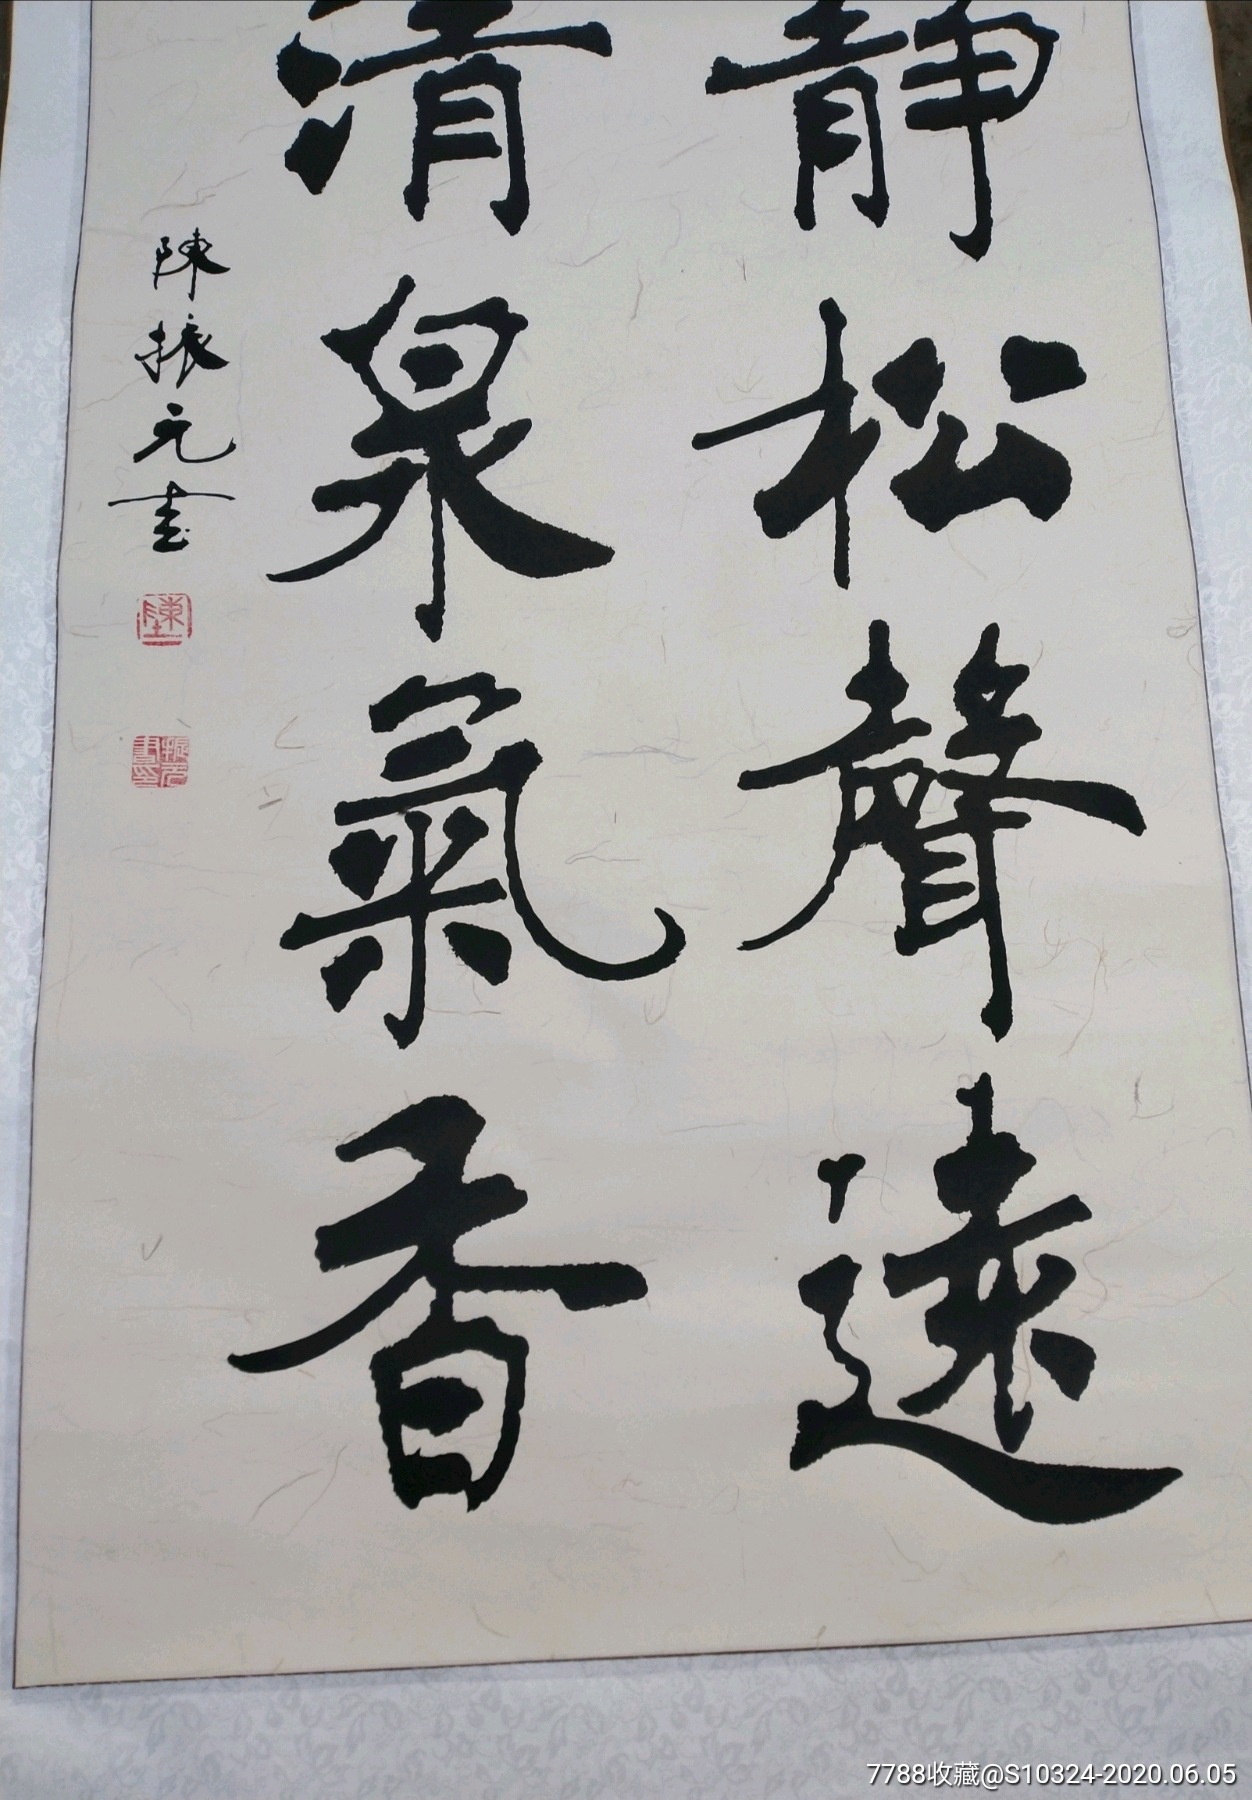 靜松聲遠
清泉氣香
陳振元書
陳
振元書印
7788收藏@S10324-2020.06.05